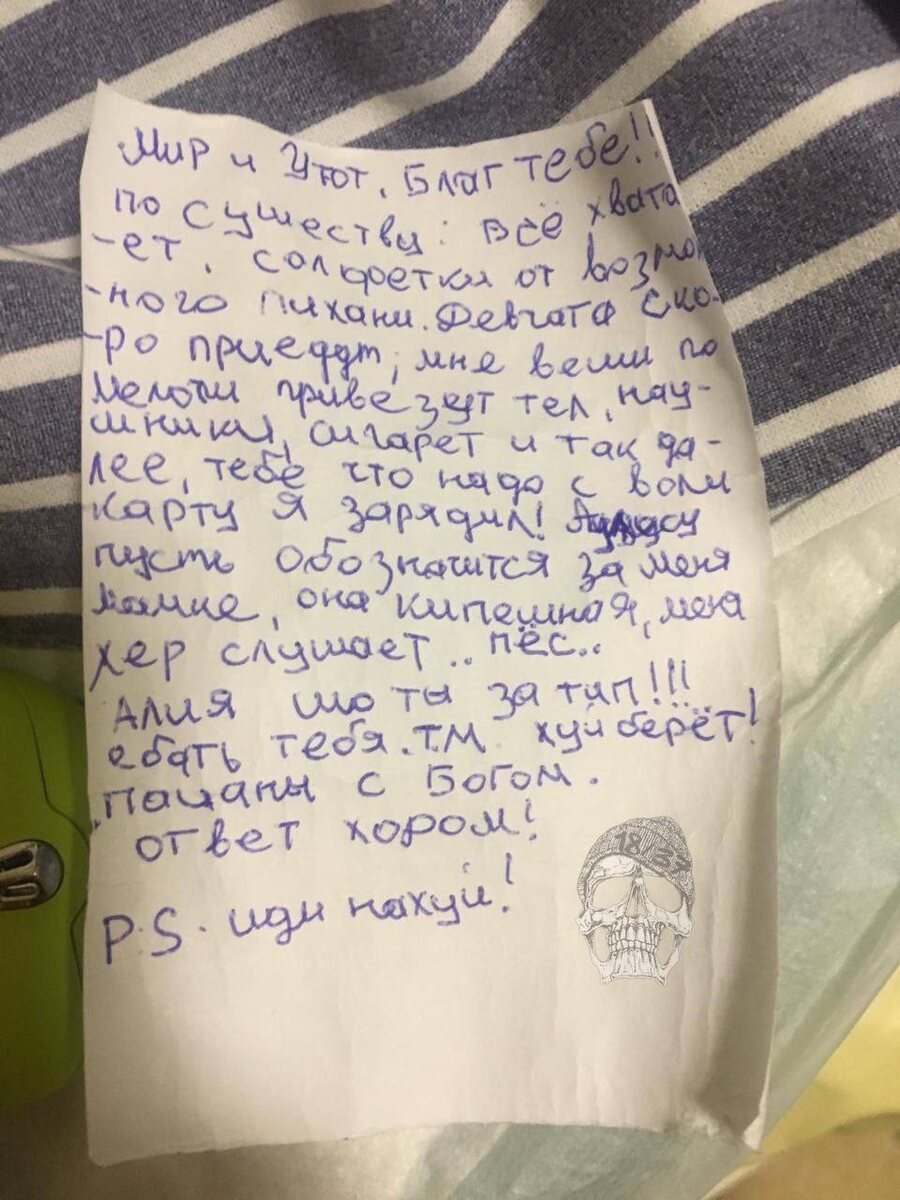 Мир и Уют, Благ тебе!!
по существу: всё хвата
-ет, солфетки от возмож
-ного пихани. Девчата ско-
-ро приедут, мне вещи по
мелочи привезут тел, нау-
шники, сигарет и так да-
лее, тебе что надо с воли
карту я зарядил!
пусть обозначится за меня
мамке, она кипешная, меня
хер слушает.. пёс..
Алия шо ты за тип!!!
ебать тебя. Т.М. хуй берёт!
пацаны с Богом.
ответ хором!
18 37
P.S. иди нахуй!